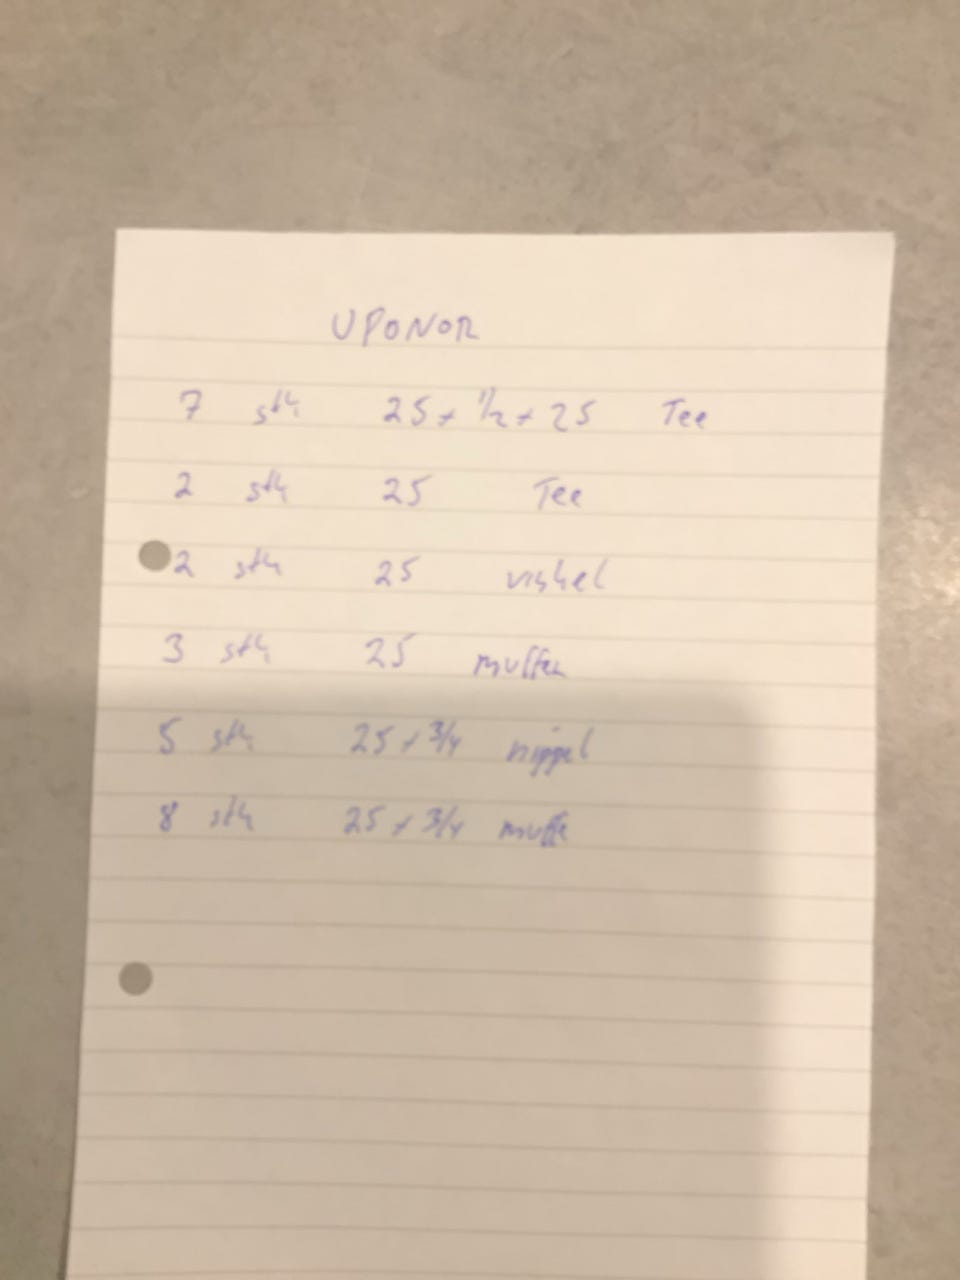 UPONOR
7 stk 25 + 1/2 + 25 Tee
2 stk 25 Tee
2 stk 25 vinkel
3 stk 25 muffen
5 stk 25 + 3/4 nippel
8 stk 25 + 3/4 muffe